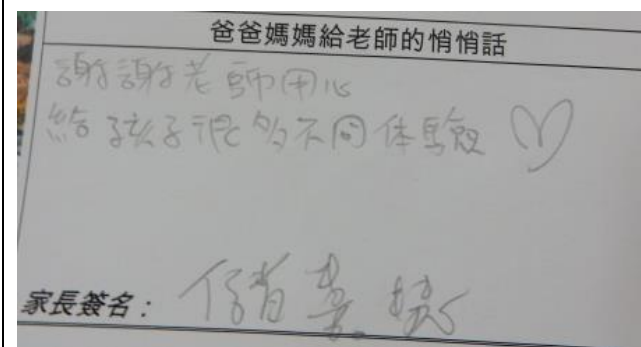 爸爸媽媽給老師的悄悄話
謝謝老師用心
給孩子很多不同体驗♡
家長簽名：